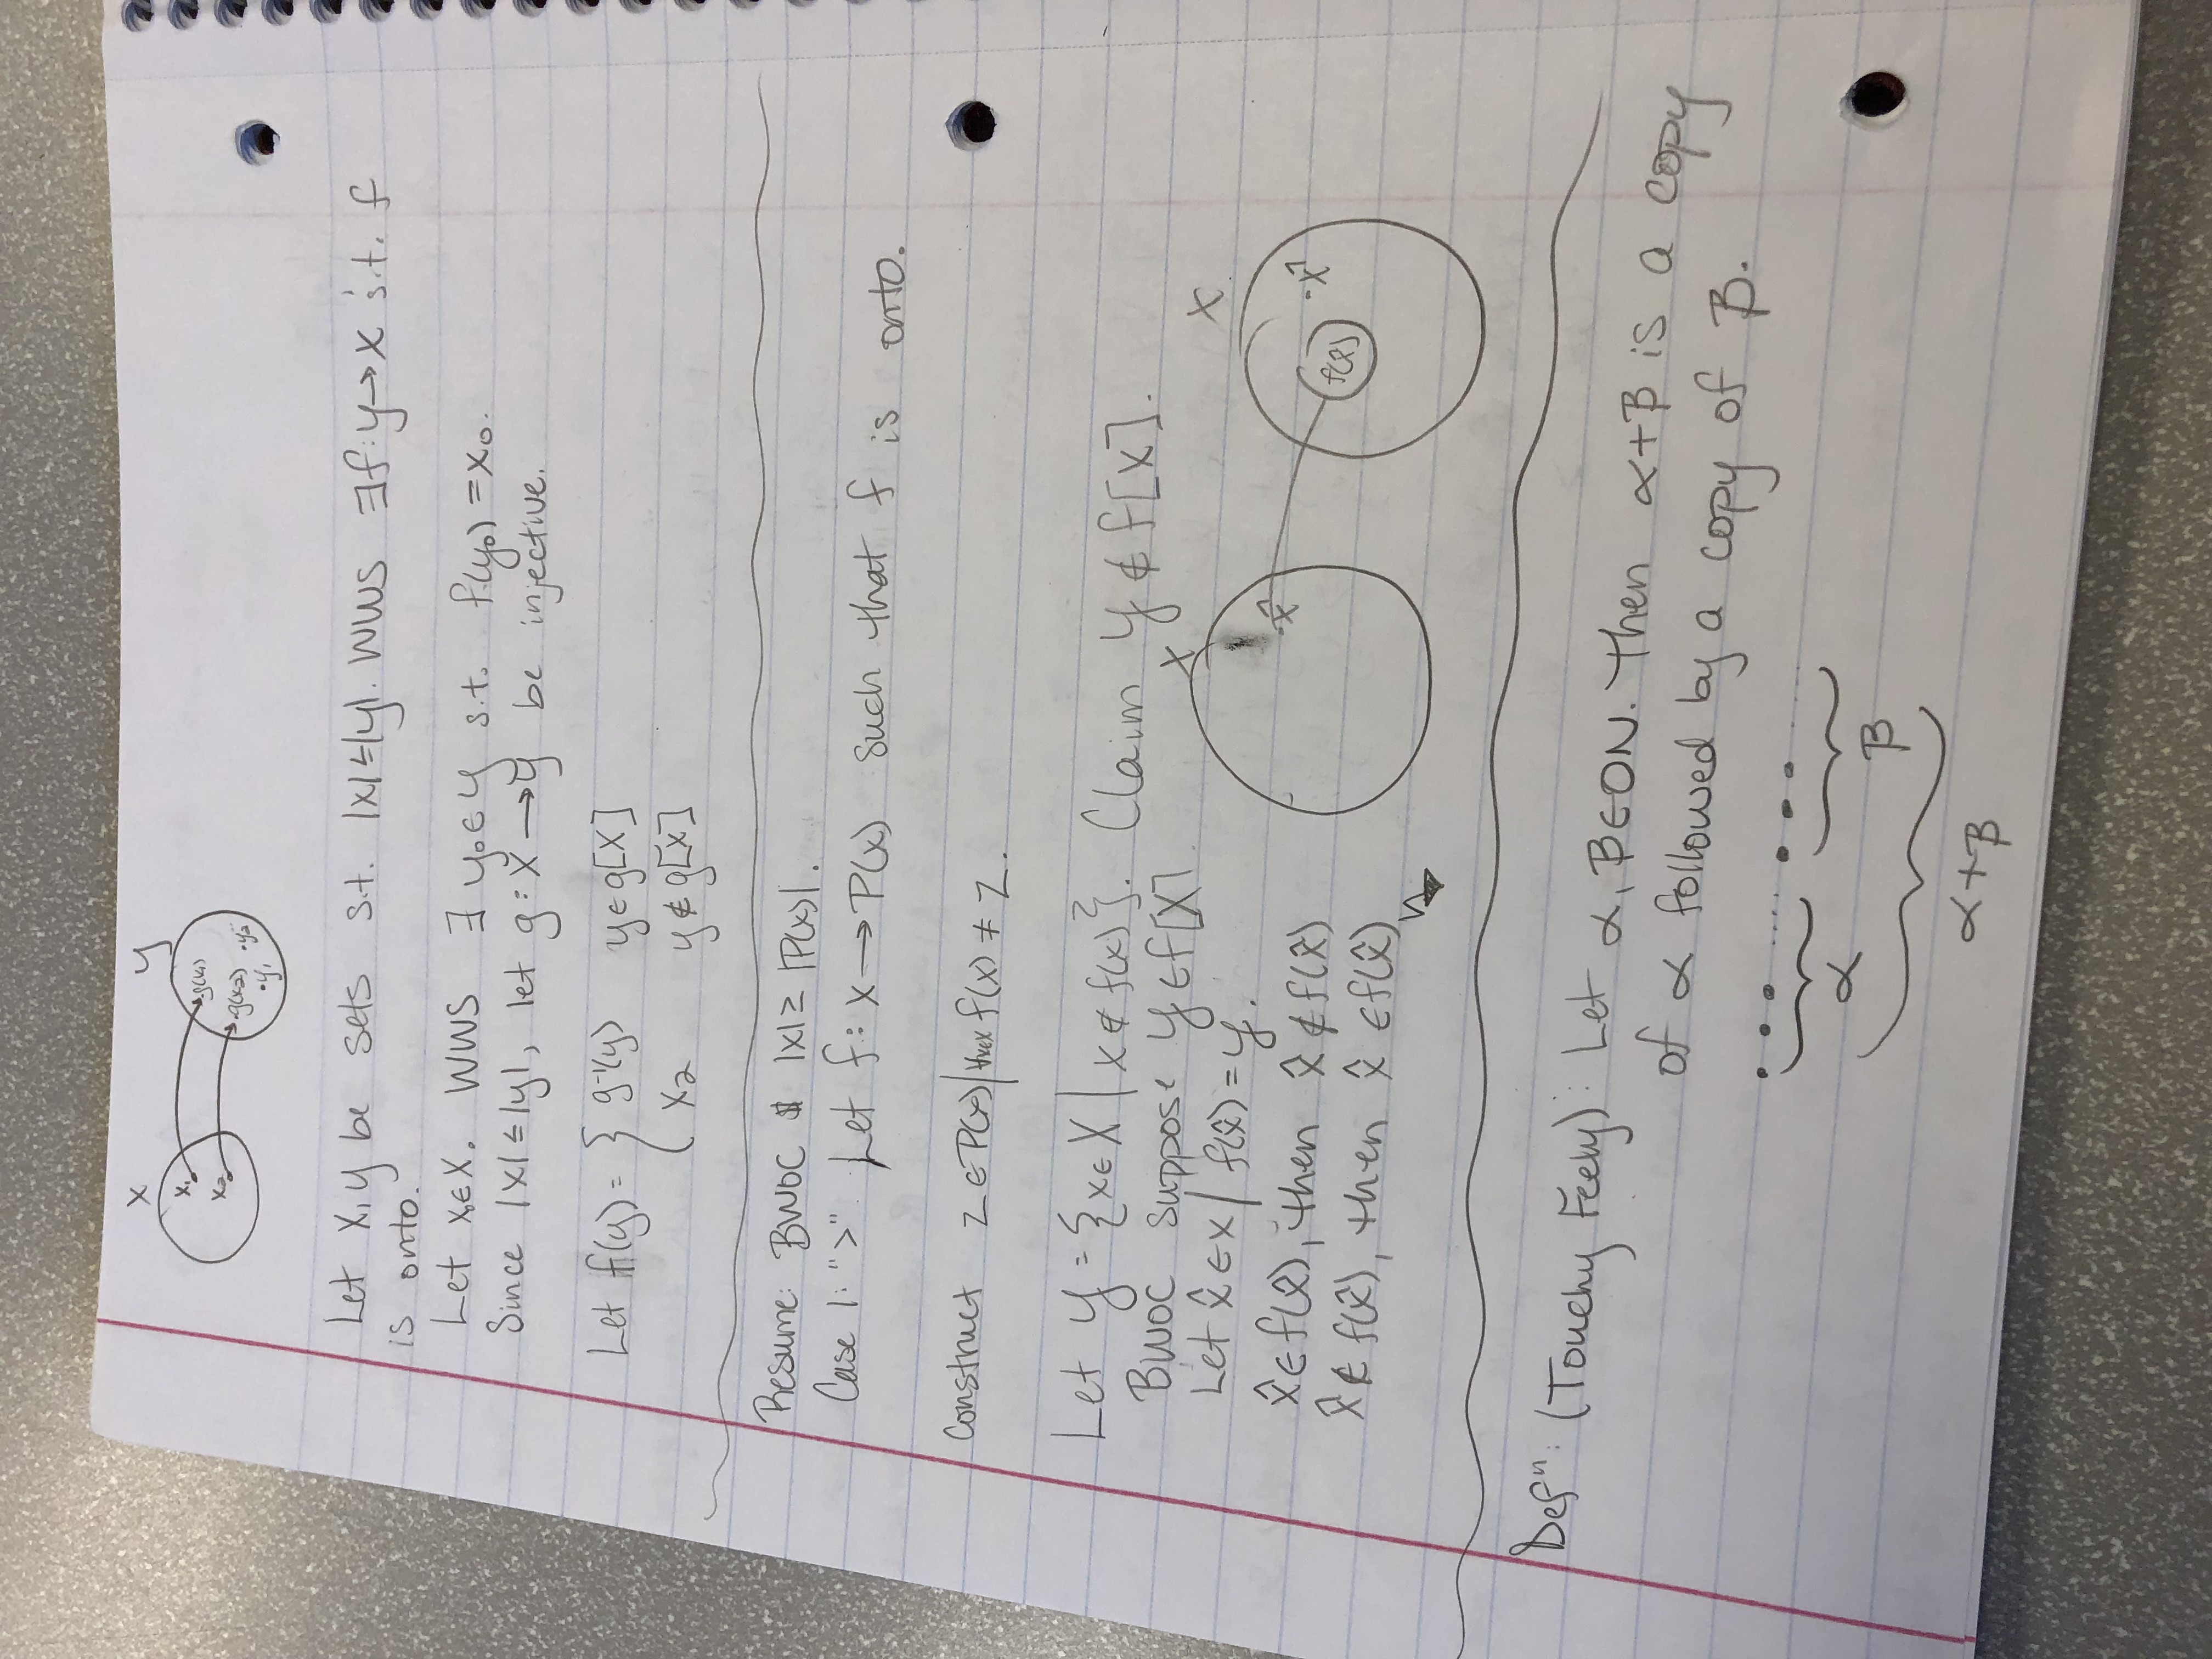 X Y
x₁ g(x₁)
x₂ g(x₂) y₂
y₁
Let X, Y be sets s.t. |X|≤|Y|. WWS ∃f:Y→X s.t. f
is onto.
Let x₀∈X. WWS ∃ y₀∈Y s.t. f(y₀)=x₀.
Since |X|≤|Y|, let g: X→Y be injective.
Let f(y)= { g⁻¹(y) y∈g[X]
x₂ y∉g[X]
Resume: BWOC $ |X|≥|P(X)|.
Case 1: ">" Let f: X→P(X) such that f is onto.
Construct Z∈P(X)|∀x∈X f(x)≠Z.
Let Y={x∈X|x∉f(x)}. Claim Y∉f[X].
BWOC suppose Y∈f[X]
Let x̂∈X| f(x̂)=Y.
x̂∈f(x̂), then x̂∉f(x̂)
x̂∉f(x̂), then x̂∈f(x̂)
X X
x̂ f(x̂) x̂
Defⁿ: (Touchy Feely): Let α, β∈ON. Then α+β is a copy
of α followed by a copy of β.
α
β
α+β